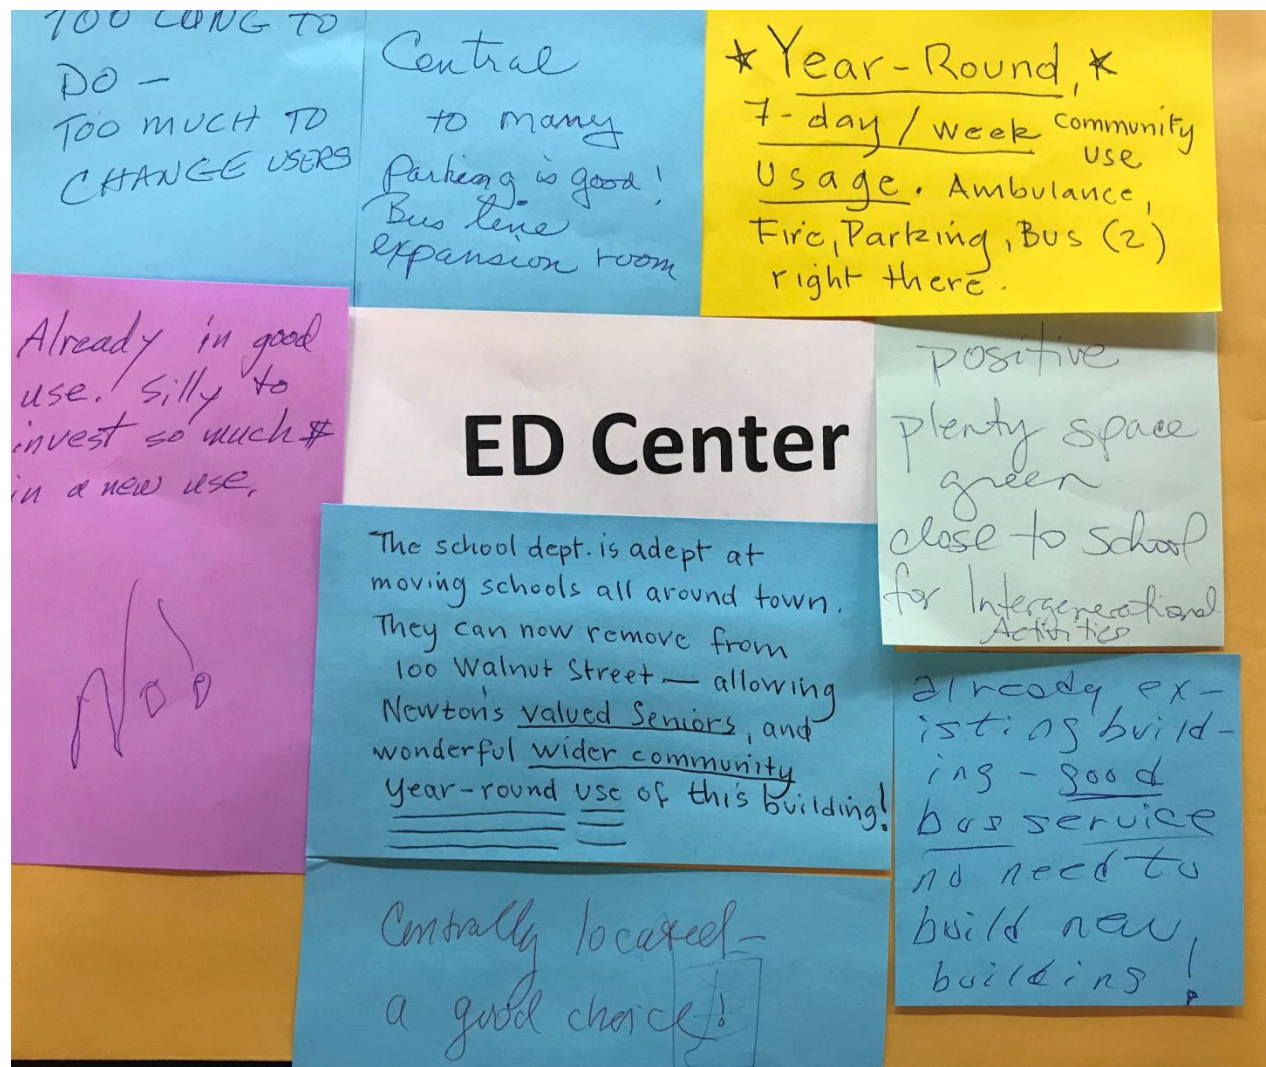 TOO LONG TO
DO -
TOO MUCH TO
CHANGE USERS
Central
to many
Parking is good!
Bus line
expansion room
* Year-Round, *
7-day/week community
use
Usage. Ambulance,
Fire, Parking, Bus (2)
right there.
Already in good
use. Silly to
invest so much $
in a new use.
No
ED Center
positive
plenty space
green
close to school
for Intergenerational
Activities
The school dept. is adept at
moving schools all around town.
They can now remove from
100 Walnut Street — allowing
Newton's valued Seniors, and
wonderful wider community
year-round use of this building!
already ex-
isting build-
ing - good
bus service
no need to
build new
building!
Centrally located -
a good choice!